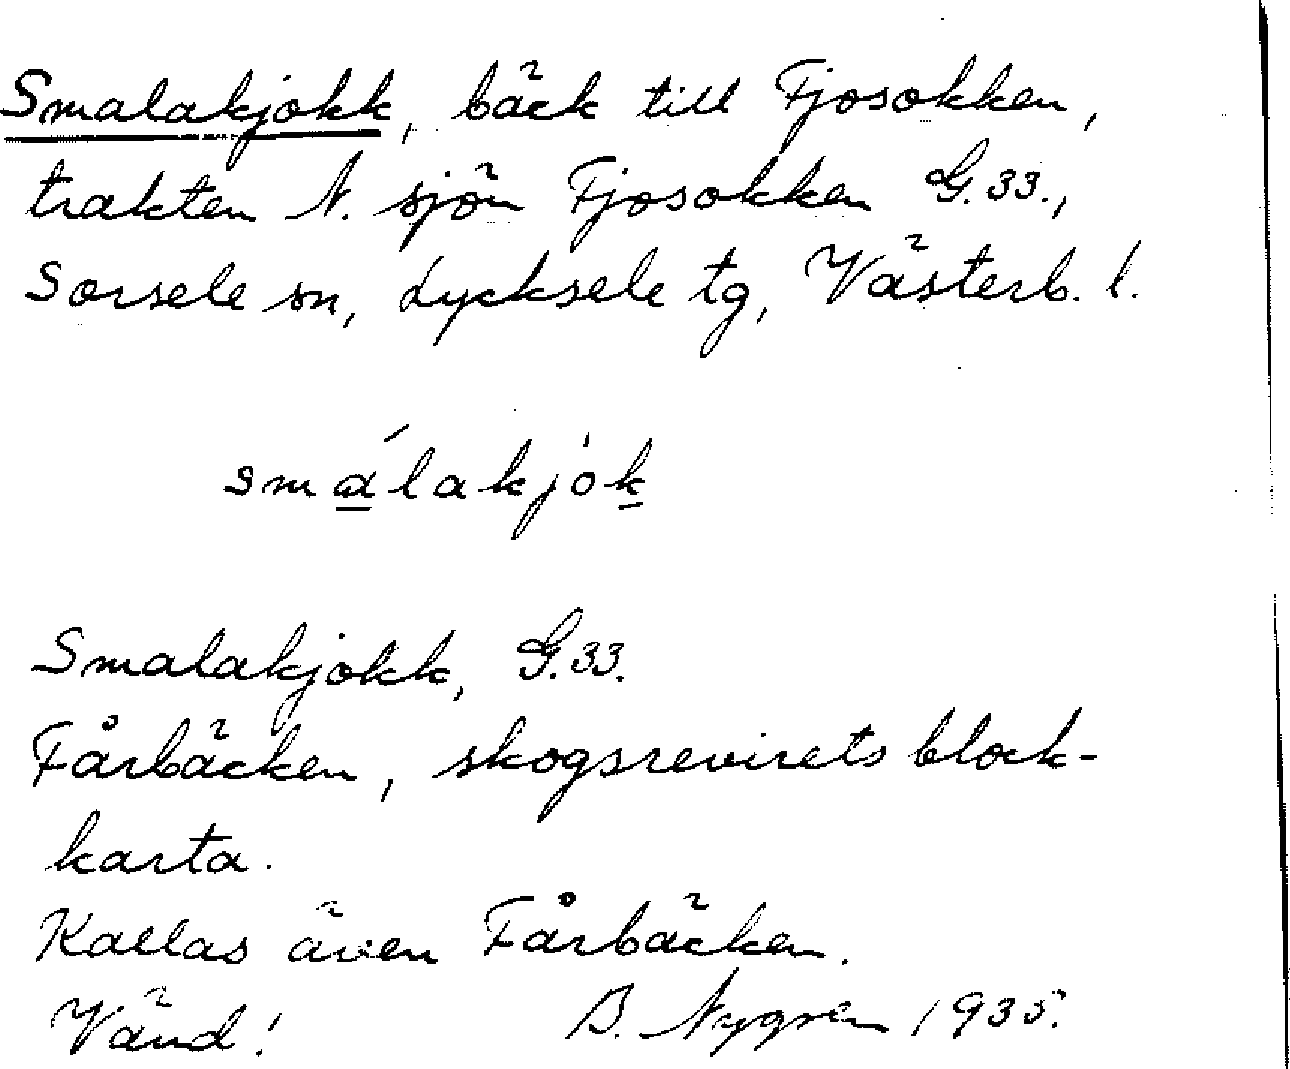 Smalakjokk, bäck till Fjosokken,
trakten N. sjön Fjosokken G.33.,
Sorsele sn, Lycksele tg, Västerb. l.
smálakjòk
Smalakjokk, G.33.
Fårbäcken, skogsrevirets block-
karta.
Kallas även Fårbäcken.
Vänd! B. Nygren 1935.